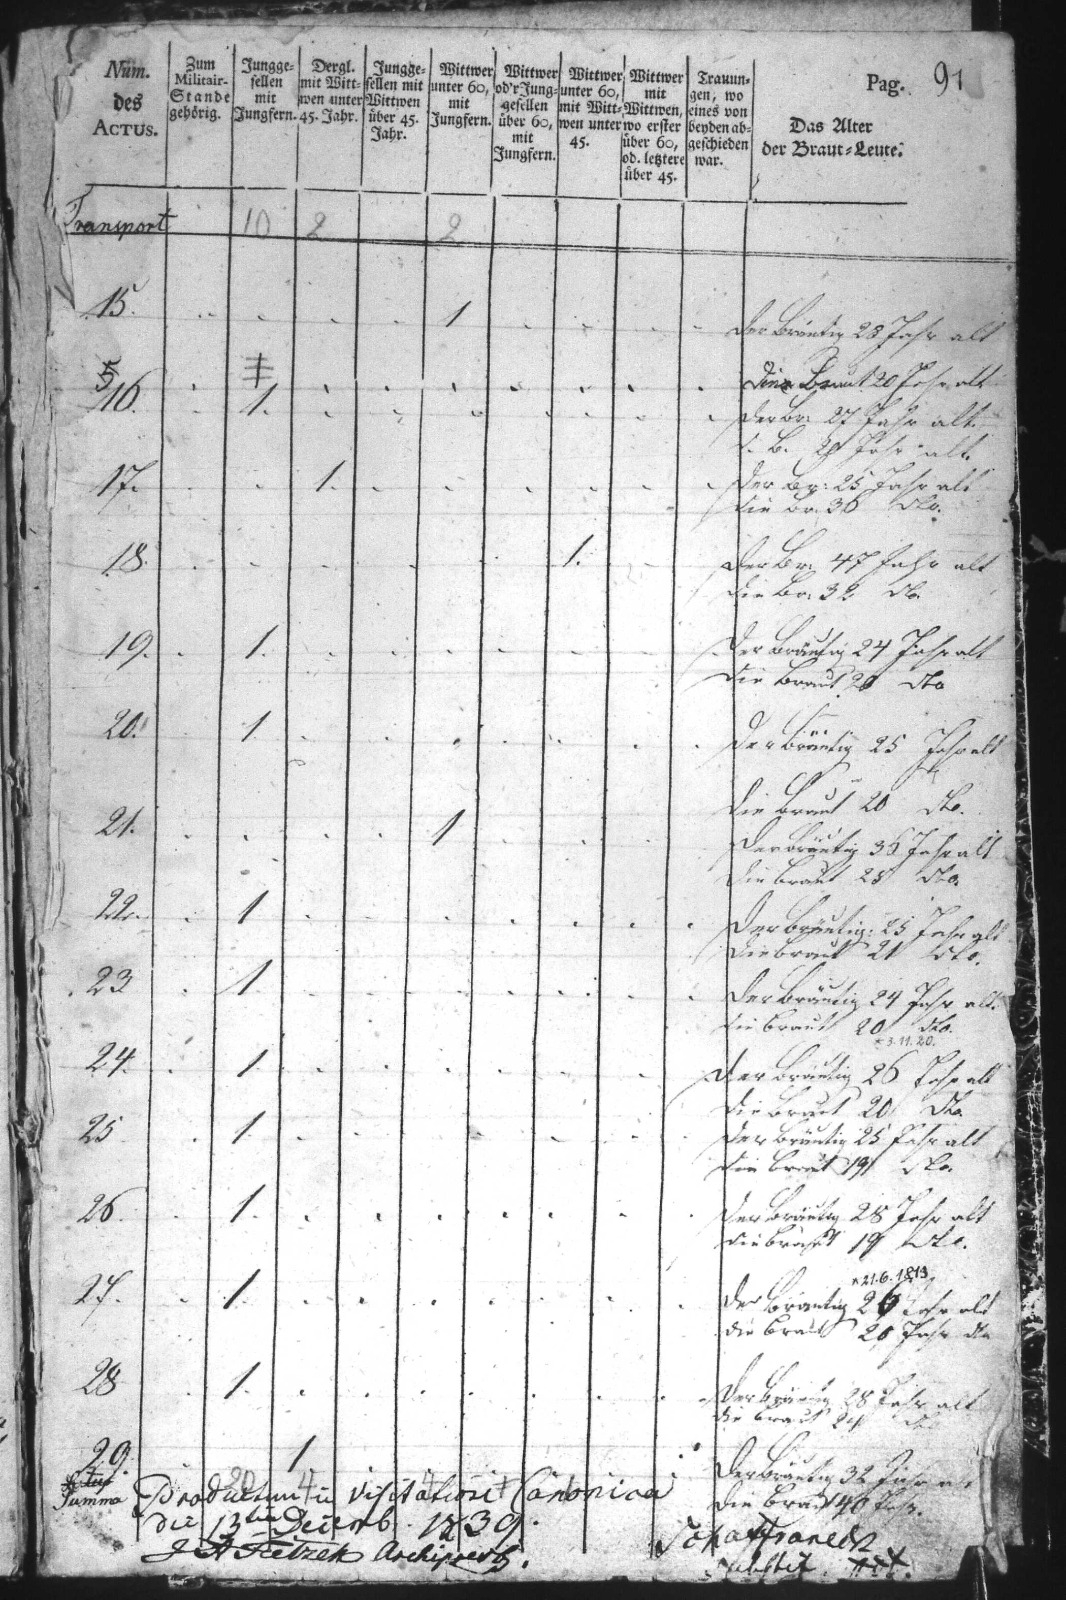 Pag. 91
Num. des ACTUS.
Zum Militair-Stande gehörig.
Jungge-sellen mit Jungfern.
Dergl. mit Witt-wen unter 45. Jahr.
Jungge-sellen mit Wittwen über 45. Jahr.
Wittwer unter 60, mit Jungfern.
Wittwer od'r Jung-gesellen über 60, mit Jungfern.
Wittwer unter 60, mit Witt-wen unter 45.
Wittwer mit Wittwen, wo erster über 60, od. letztere über 45.
Trauun-gen, wo eines von beyden ab-geschieden war.
Das Alter der Braut-Leute.
Transport 10 2 2
15. 1 Der Bräutig 23 Jahr alt
Die Braut 20 Jahr alt
16. 1. Der Br: 27 Jahr alt.
B. Jahr alt.
17. 1. Der Br: 25 Jahr alt
Die Br: 36 dto.
18. 1. Der Br: 47 Jahr alt
Die Br: 32 dto.
19. 1. Der Bräutig 24 Jahr alt
Die Braut 20 dto
20. 1. Der Bräutig 25 Jahr alt
Die Braut 20 dto.
21. 1 Der Bräutig 36 Jahr alt
Die Braut 23 dto.
22. 1 Der Bräutig: 25 Jahr alt
Die Braut 21 dto.
23 1 Der Bräutig 24 Jahr alt.
Die Braut 20 dto.
* 3.11.20.
24. 1. Der Bräutig 26 Jahr alt
Die Braut 20 dto.
25 1. Der Bräutig 25 Jahr alt
Die Braut 19 dto.
26 1. Der Bräutig 28 Jahr alt
Die Braut 19 dto.
* 21.6.1813.
27. 1. Der Bräutig 26 Jahr alt
Die Braut 20 Jahr dto
28 1. Der Bräutig 28 Jahr alt
Die Braut
29. 1 Der Bräutig 32 Jahr
Die Braut 40 Jahr.
Summa 20 4 4 1
Productum in visitatione Canonica
die 13tia Decemb. 1839.
Fietzek Archipresb.
Schaffranek